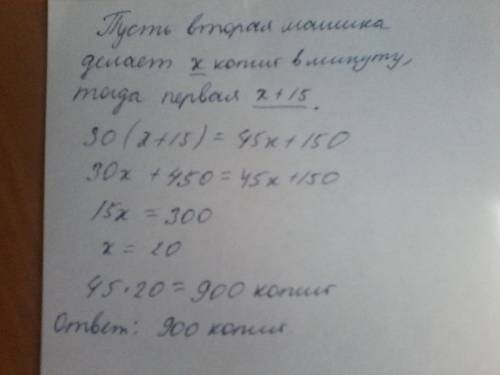 Пусть вторая машинка
делает x копий в минуту,
тогда первая x+15.
30(x+15)=45x+150
30x+450=45x+150
15x=300
x=20
45·20=900 копий
Ответ: 900 копий